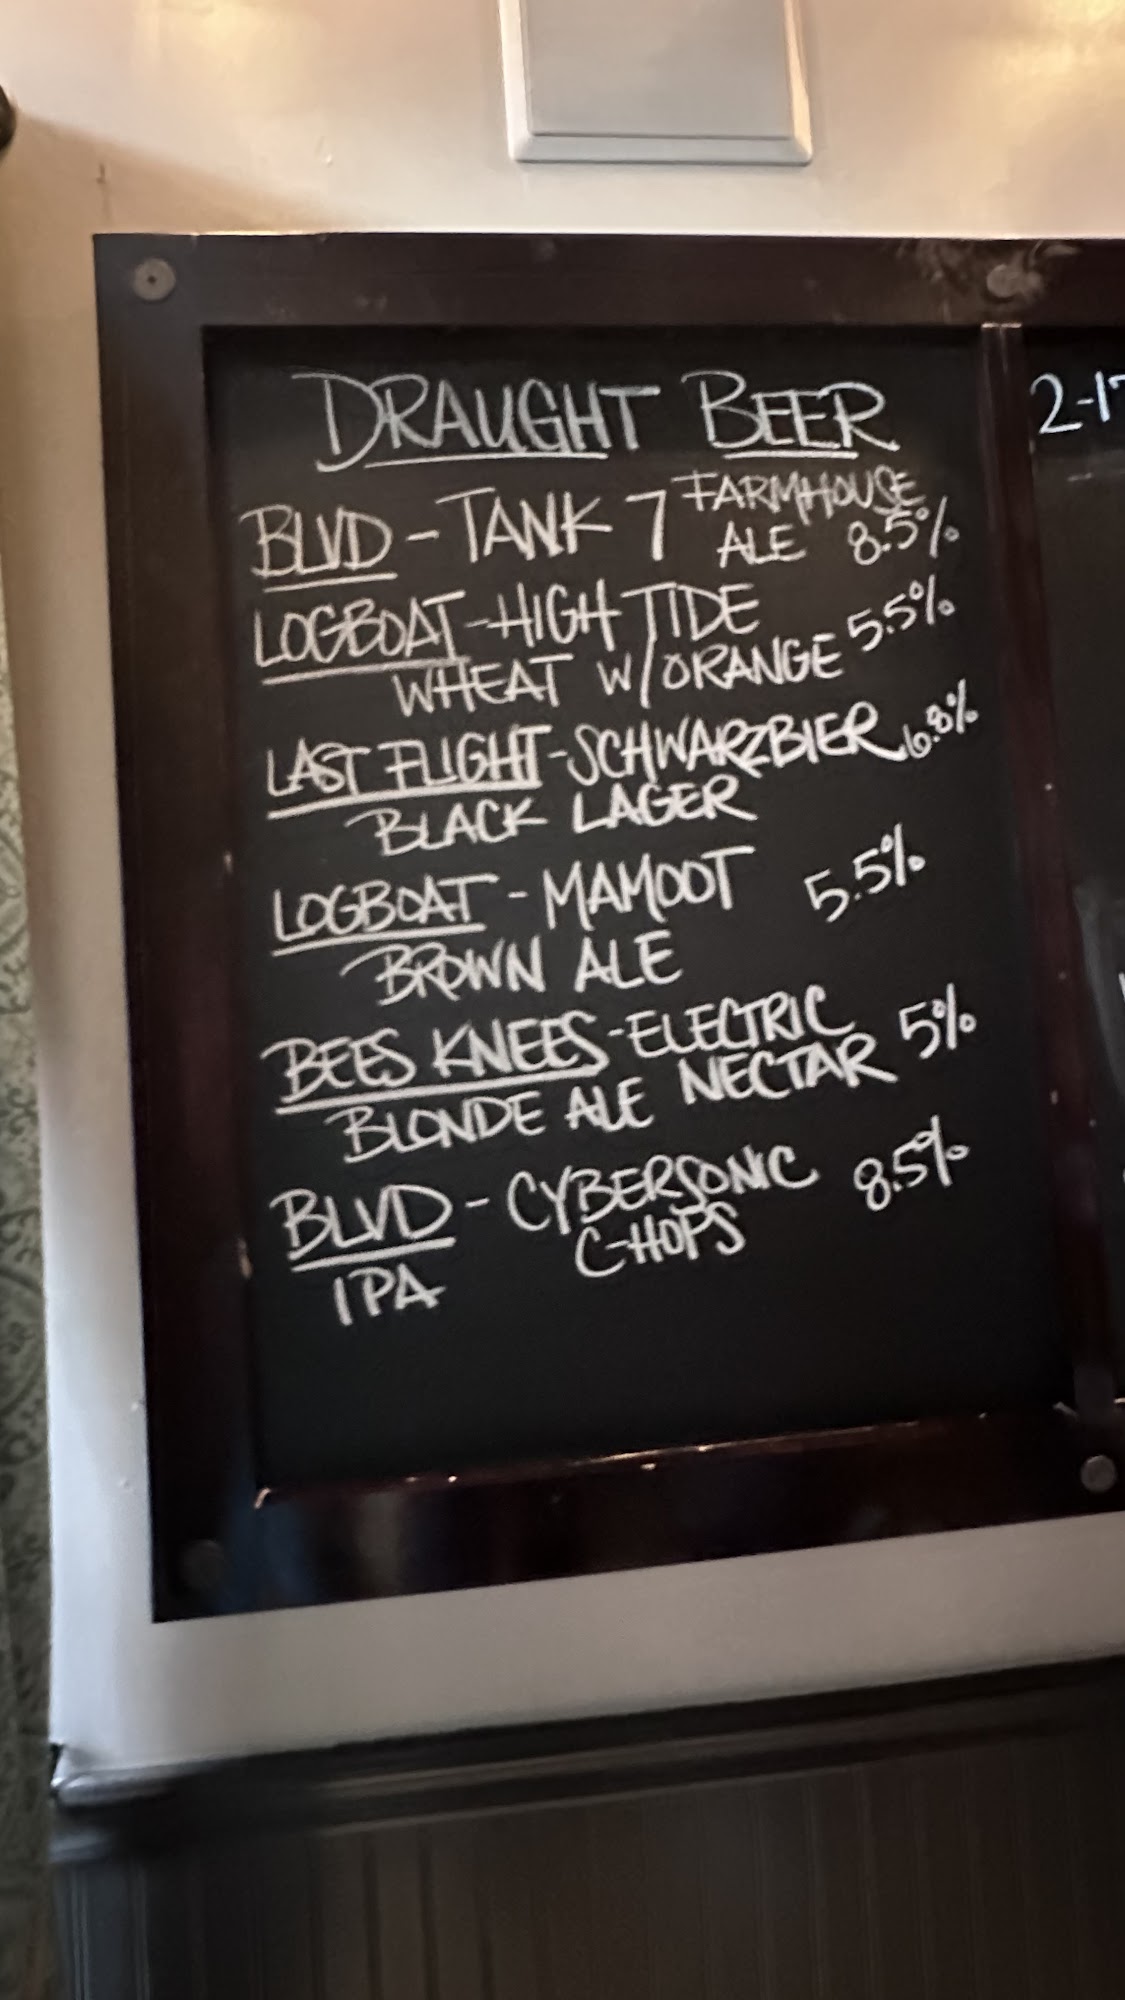 DRAUGHT BEER
BLVD - TANK 7 FARMHOUSE
ALE 8.5%
LOGBOAT - HIGH TIDE
WHEAT W/ORANGE 5.5%
LAST FLIGHT - SCHWARZBIER 6.8%
BLACK LAGER
LOGBOAT - MAMOOT 5.5%
BROWN ALE
BEES KNEES - ELECTRIC
BLONDE ALE NECTAR 5%
BLVD - CYBERSONIC 8.5%
C-HOPS
IPA
2-17